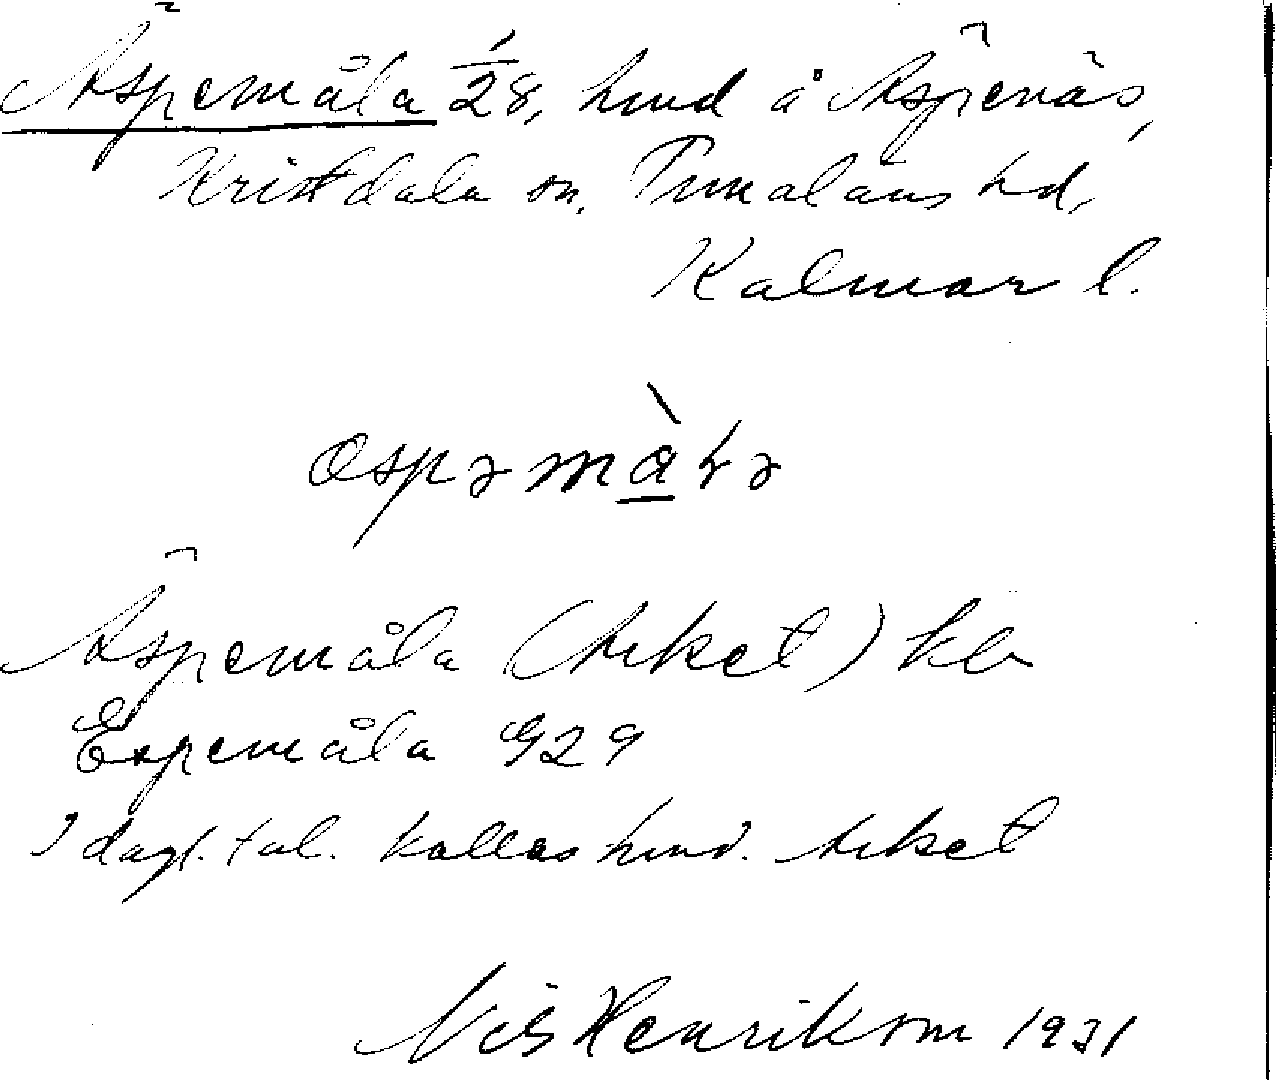 Äspemåla 1/28, hmd å Äspenäs,
Kristdala sn, Tunaläns hd,
Kalmar l.
Äspemåla (Arket) kbr
Espemåla 929
I dagl. tal. kallas hmd. Arket
Nils Henrikson 1931